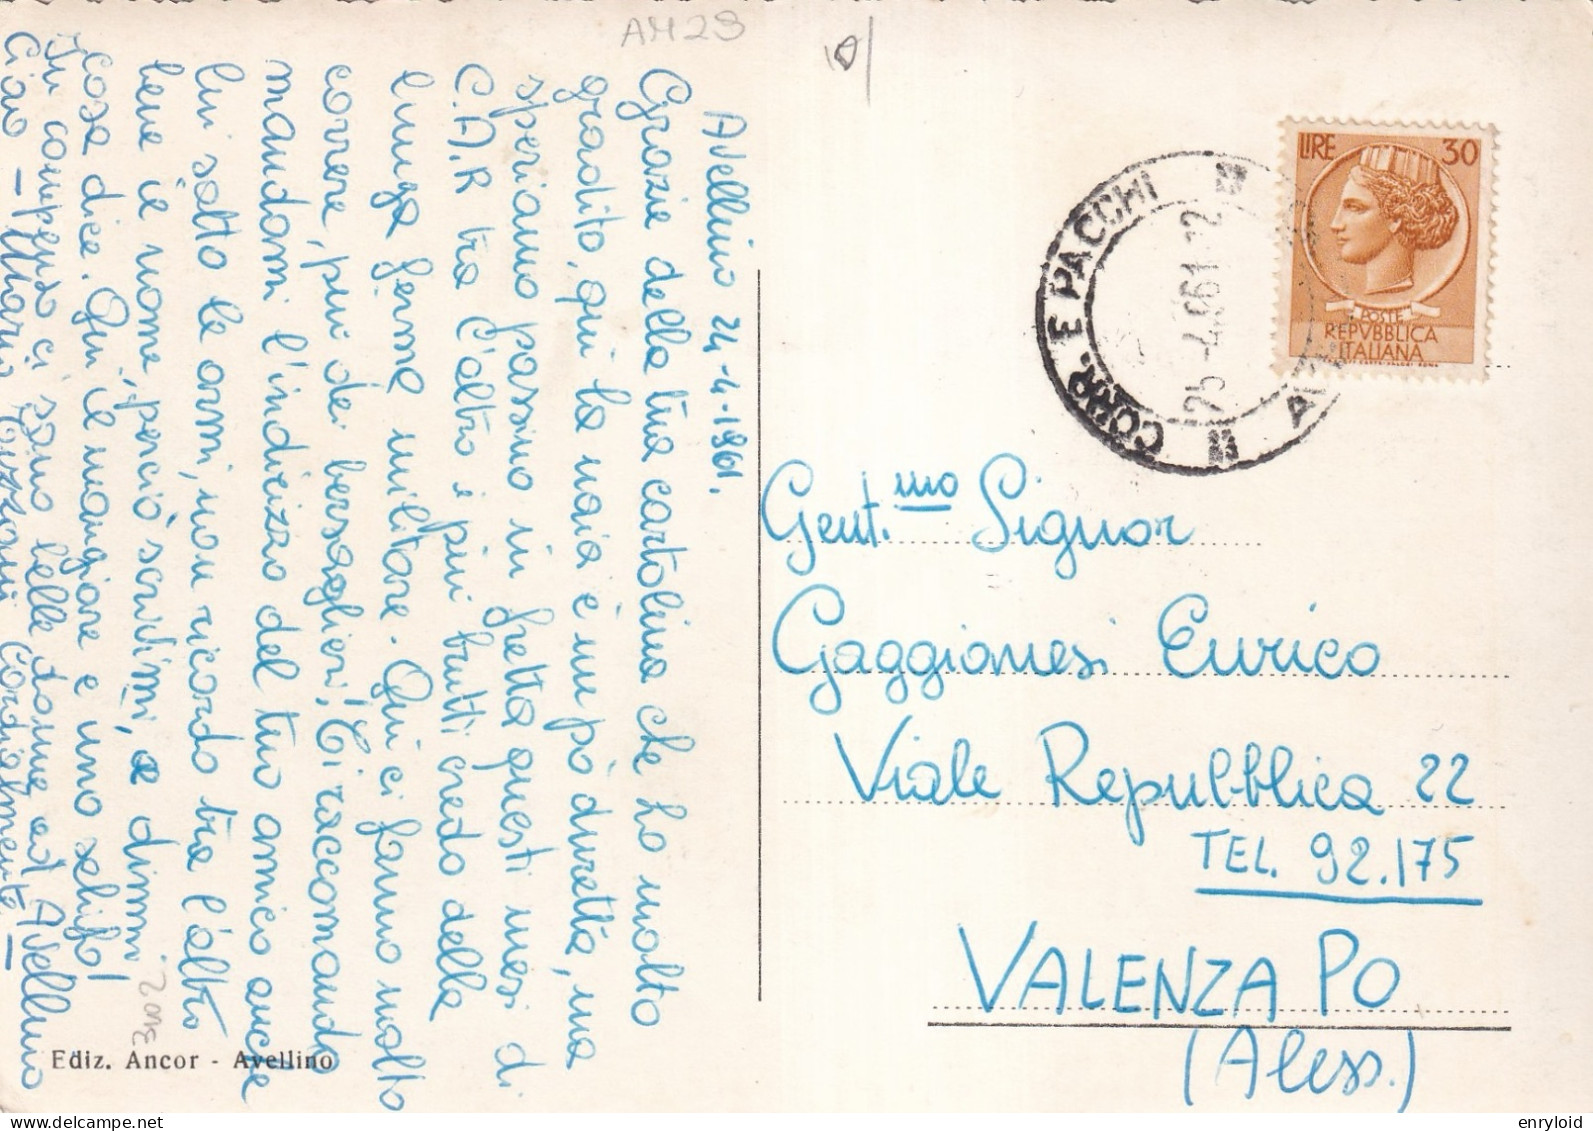 AM29
Avellino 24-4-1961.
Grazie della tua cartolina che ho molto
gradito, qui la naia è un pò duretta, ma
speriamo passino in fretta questi mesi di
C.A.R tra l'altro i più brutti credo della
lunga ferma militare. Qui ci fanno molto
correre, più dei bersaglieri; Ti raccomando
mandami l'indirizzo del tuo amico anche
lui sotto le armi, non ricordo tra l'altro
bene il nome, perciò scrivimi, e dimmi
cosa dice. Qui il mangiare è uno schifo!
In compenso ci sono belle donne ad Avellino
Ciao - Mario Cordialmente -
Ediz. Ancor - Avellino
LIRE 30
POSTE
REPVBBLICA
ITALIANA
CORR. E PACCHI
25-4.961 12
Gent.mo Signor
Gaggionesi Enrico
Viale Repubblica 22
TEL. 92.175
VALENZA PO
(Aless.)
enryloid